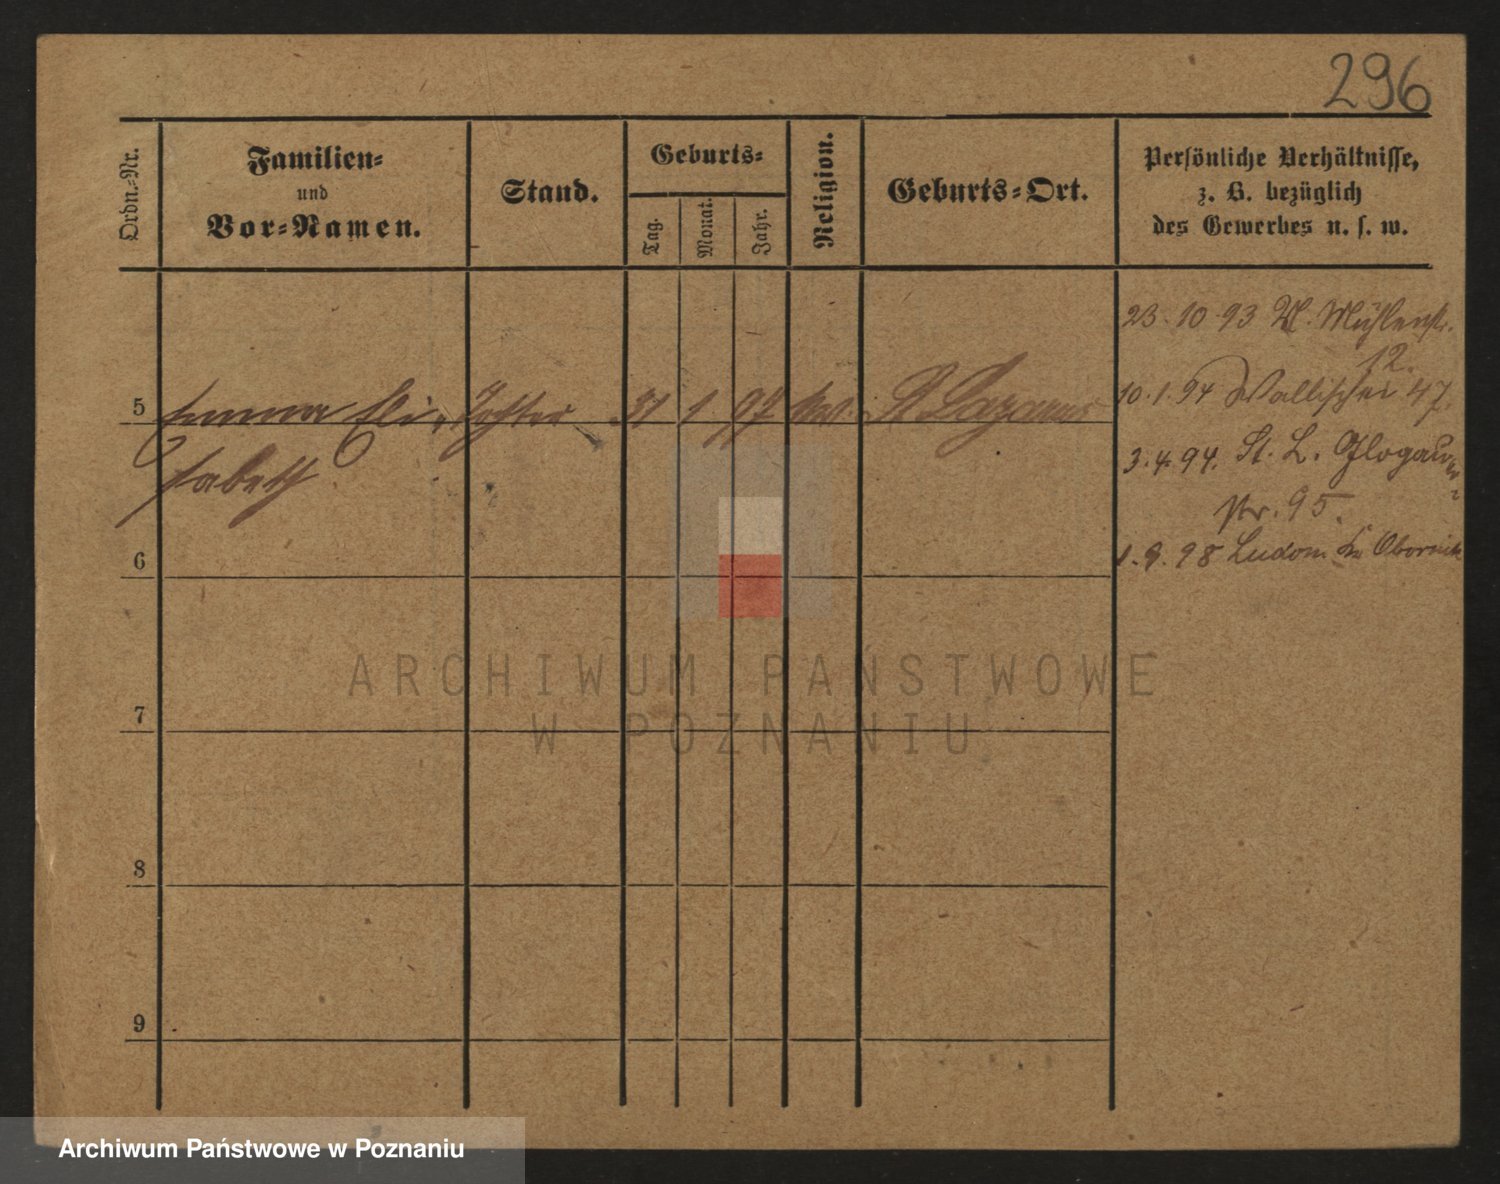 296
Ordn.-Nr.
Familien-
und
Vor-Namen.
Stand.
Geburts-
Tag.
Monat.
Jahr.
Religion.
Geburts-Ort.
Persönliche Verhältnisse,
z. B. bezüglich
des Gewerbes u. s. w.
23.10.93 W. Mühlenstr.
12.
10.1.94 Wallischei 47.
5 Emma Eli- Tochter 31 1 97 St Lazarus
sabeth
3.4.94. St. L. Glogauer
str. 95.
6
1.9.98 Ludom Kr Obornik
ARCHIWUM PAŃSTWOWE
W POZNANIU
7
8
9
Archiwum Państwowe w Poznaniu